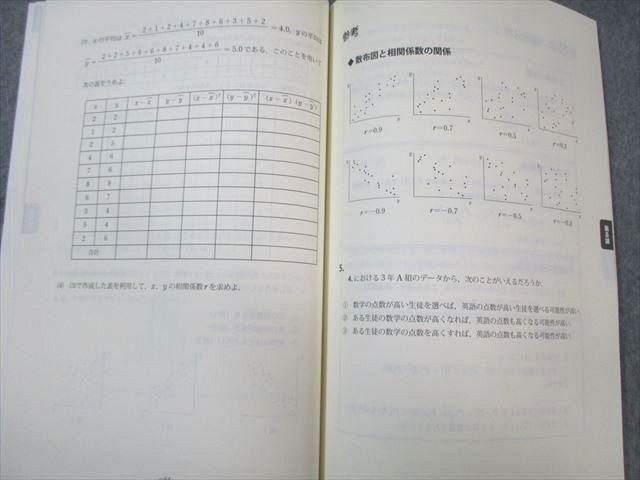 (3) xの平均は x̄ = (2+1+2+4+7+8+6+3+5+2)/10 = 4.0, yの平均は
ȳ = (2+2+5+6+6+8+7+4+4+6)/10 = 5.0である。このことを用いて
次の表をうめよ。
x y x−x̄ y−ȳ (x−x̄)² (y−ȳ)² (x−x̄)(y−ȳ)
2 2
1 2
2 5
4 6
7 6
8 8
6 7
3 4
5 4
2 6
合計
(4) (3)で作成した表を利用して、x, yの相関係数rを求めよ。
参考
◆散布図と相関係数の関係
r=0.9 r=0.7 r=0.5 r=0.3
r=−0.9 r=−0.7 r=−0.5 r=−0.3
5.
4.における3年A組のデータから、次のことがいえるだろうか。
① 数学の点数が高い生徒を選べば、英語の点数が高い生徒を選べる可能性が高い
② ある生徒の数学の点数が高くなれば、英語の点数も高くなる可能性が高い
③ ある生徒の数学の点数を高くすれば、英語の点数も高くなる可能性が高い